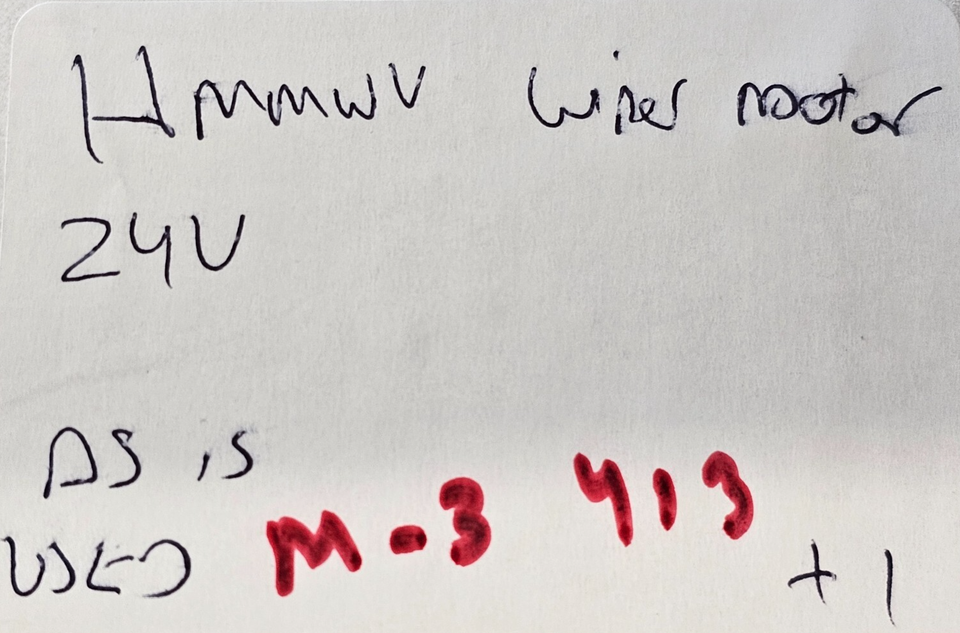 HMMWV wiper motor
24V
AS is
USED M-3 413 +1